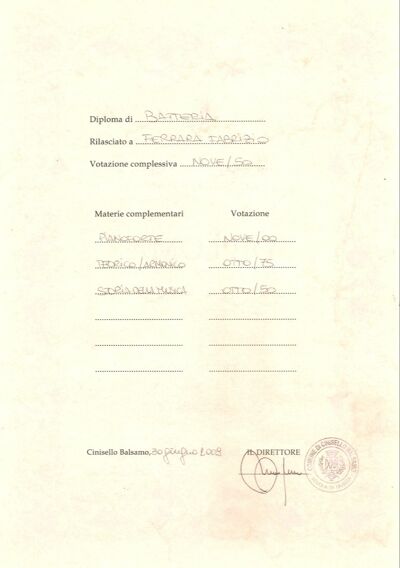 Diploma di BATTERIA
Rilasciato a FERRARA FABRIZIO
Votazione complessiva NOVE/50
Materie complementari Votazione
PIANOFORTE NOVE/00
TEORICO/ARMONICO OTTO/75
STORIA DELLA MUSICA OTTO/50
Cinisello Balsamo, 30 giugno 2009 IL DIRETTORE
COMUNE DI CINISELLO BALSAMO